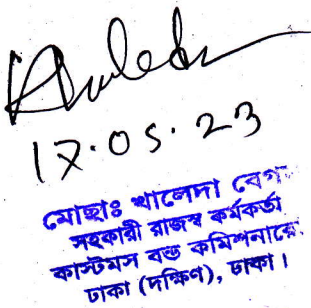 Khaleda
17.05.23
মোছাঃ খালেদা বেগম
সহকারী রাজস্ব কর্মকর্তা
কাস্টমস বন্ড কমিশনারেট
ঢাকা (দক্ষিণ), ঢাকা।